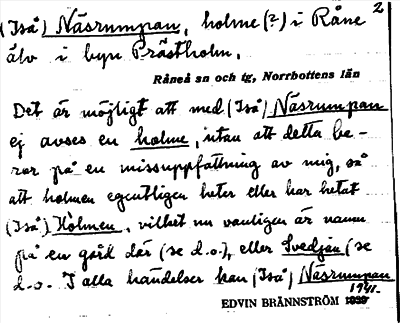 2
(Iså) Näsrumpan, holme(?) i Råne
älv i byn Prästholm.
Råneå sn och tg, Norrbottens län
Det är möjligt att med (Iså) Näsrumpan
ej avses en holme, utan att detta be-
ror på en missuppfattning av mig, så
att holmen egentligen heter eller har hetat
(Iså) Holmen, vilket nu vanligen är namn
på en gård där (se d.o.), eller Svedjan (se
d.o. I alla händelser kan (Iså) Näsrumpan
1941.
EDVIN BRÄNNSTRÖM 1939